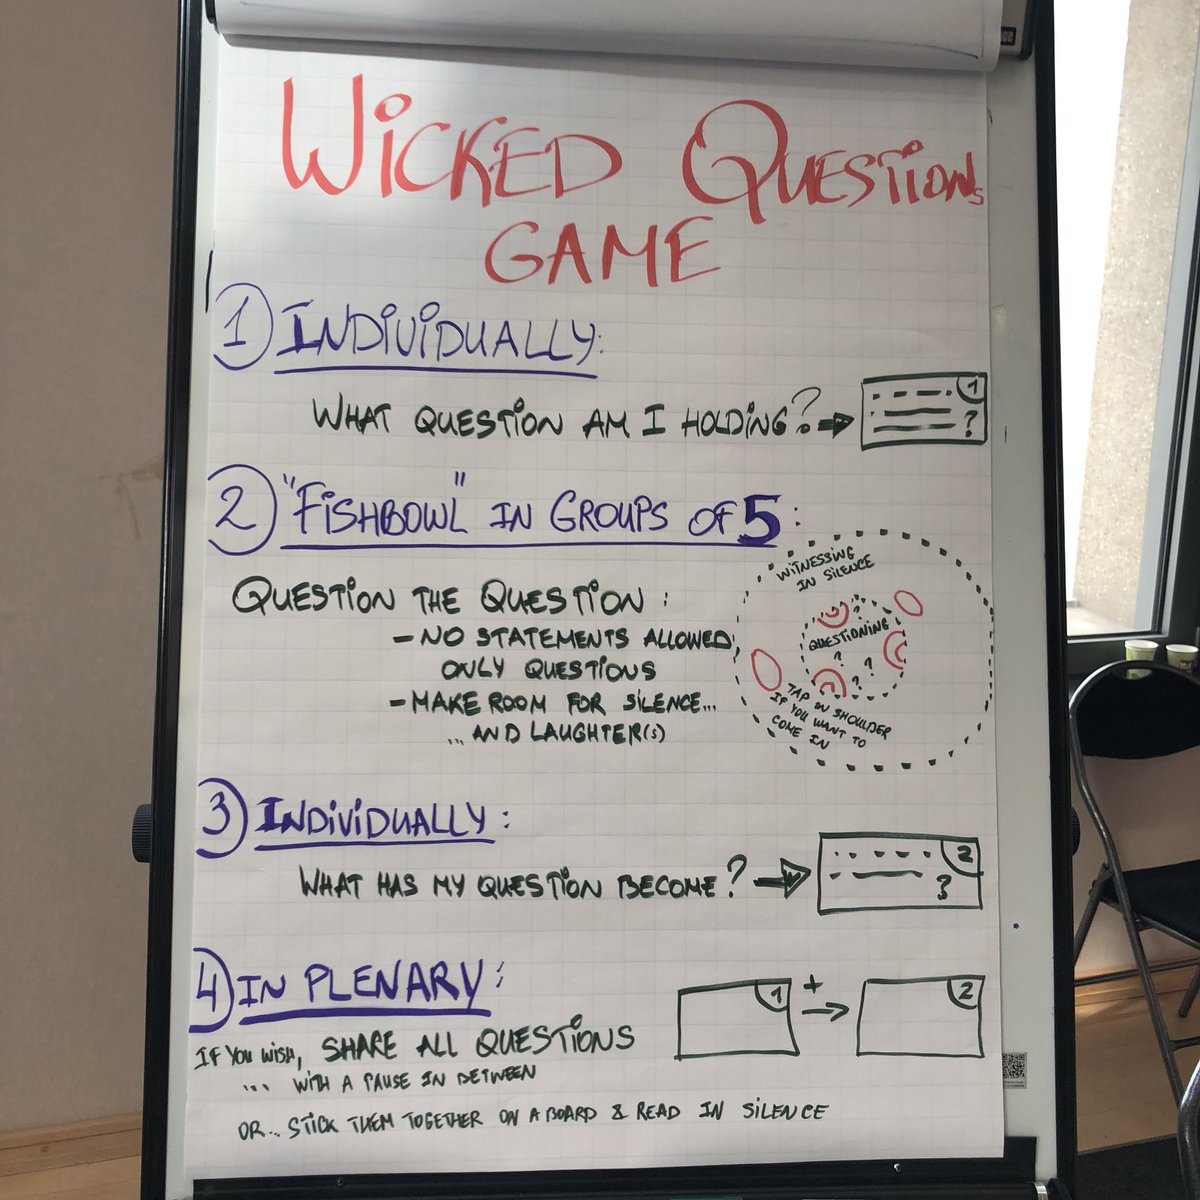 WICKED QUESTIONS
GAME
1 INDIVIDUALLY:
WHAT QUESTION AM I HOLDING?
1
?
2 "FISHBOWL" IN GROUPS OF 5:
QUESTION THE QUESTION:
- NO STATEMENTS ALLOWED
ONLY QUESTIONS
- MAKE ROOM FOR SILENCE...
... AND LAUGHTER(S)
WITNESSING
IN SILENCE
?
QUESTIONING
? ?
? ?
TAP ON SHOULDER
IF YOU WANT TO
COME IN
3 INDIVIDUALLY:
WHAT HAS MY QUESTION BECOME?
2
?
4 IN PLENARY:
1 + 2
IF YOU WISH, SHARE ALL QUESTIONS
... WITH A PAUSE IN BETWEEN
OR... STICK THEM TOGETHER ON A BOARD & READ IN SILENCE